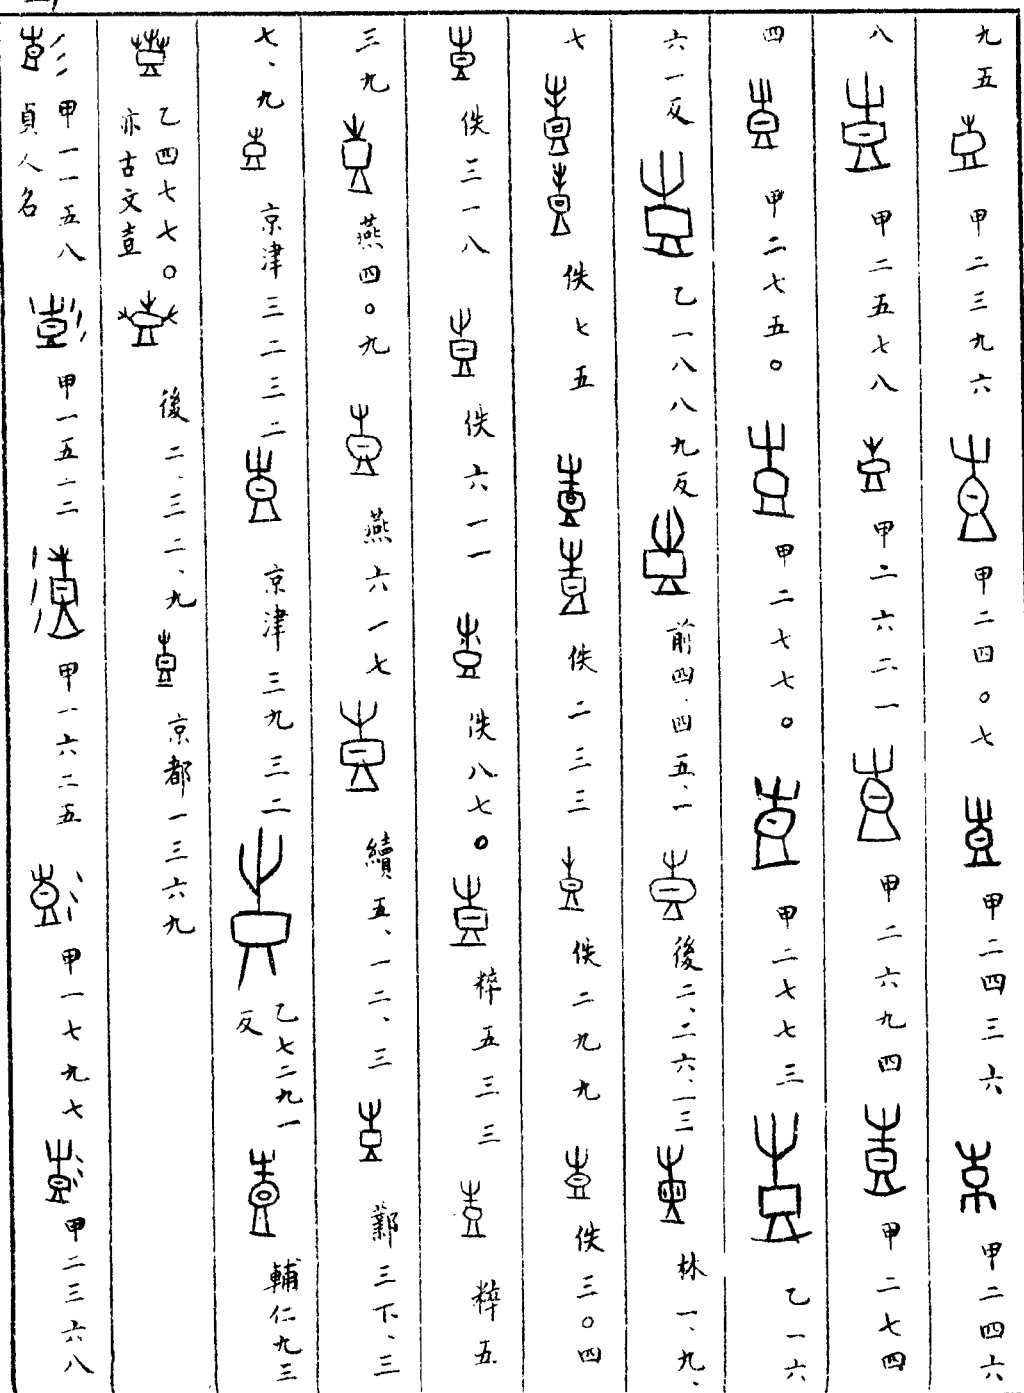 九五 甲二三九六 甲二四〇七 甲二四三六 甲二四六
八 甲二五七八 甲二六二一 甲二六九四 甲二七四
四 甲二七五〇 甲二七七〇 甲二七七三 乙一六
六一反 乙一八八九反 前四.四五.一 後二.二六.一三 林一.九.
七 佚七五 佚二三三 佚二九九 佚三〇四
佚三一八 佚六一一 佚八七〇 粹五三三 粹五
三九 燕四〇九 燕六一七 續五、一二、三 鄴三下.三
七、九 京津三二三二 京津三九三二 乙七二九一反 輔仁九三
乙四七七〇 亦古文壴 後二.三二.九 京都一三六九
甲一一五八 貞人名 甲一五一二 甲一六二五 甲一七九七 甲二三六八